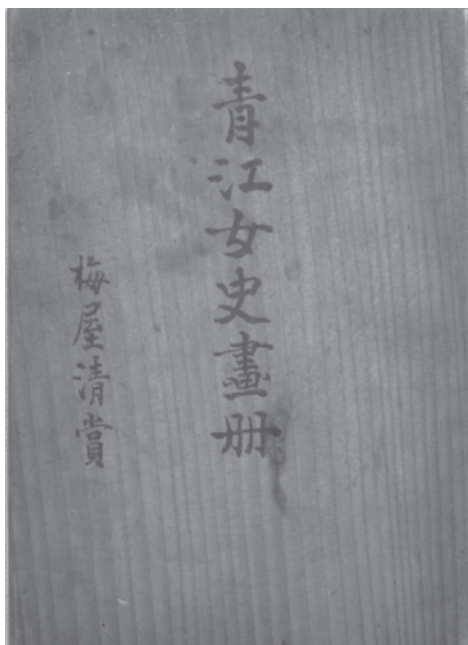 青江女史畫册
梅屋清賞